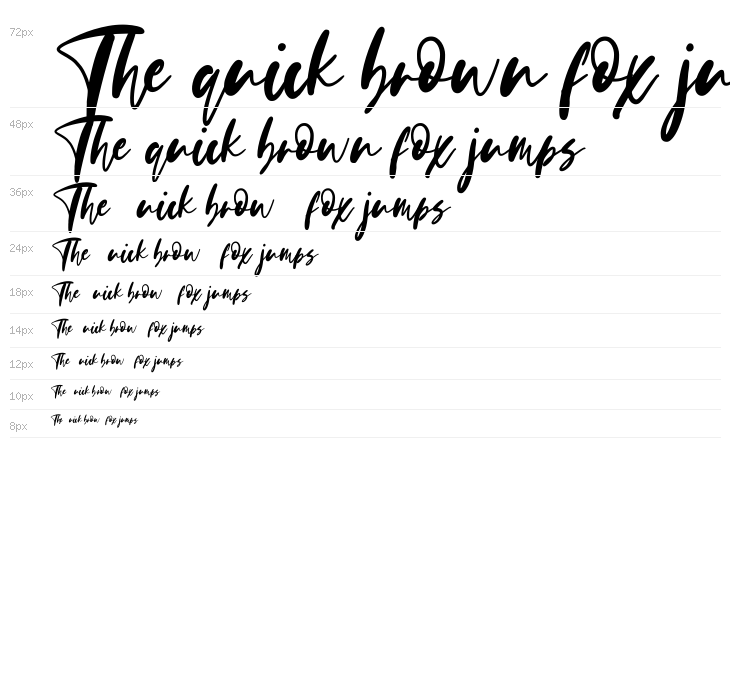 72px The quick brown fox ju
48px The quick brown fox jumps
36px The uick brow fox jumps
24px The uick brow fox jumps
18px The uick brow fox jumps
14px The uick brow fox jumps
12px The uick brow fox jumps
10px The uick brow fox jumps
8px The uick brow fox jumps